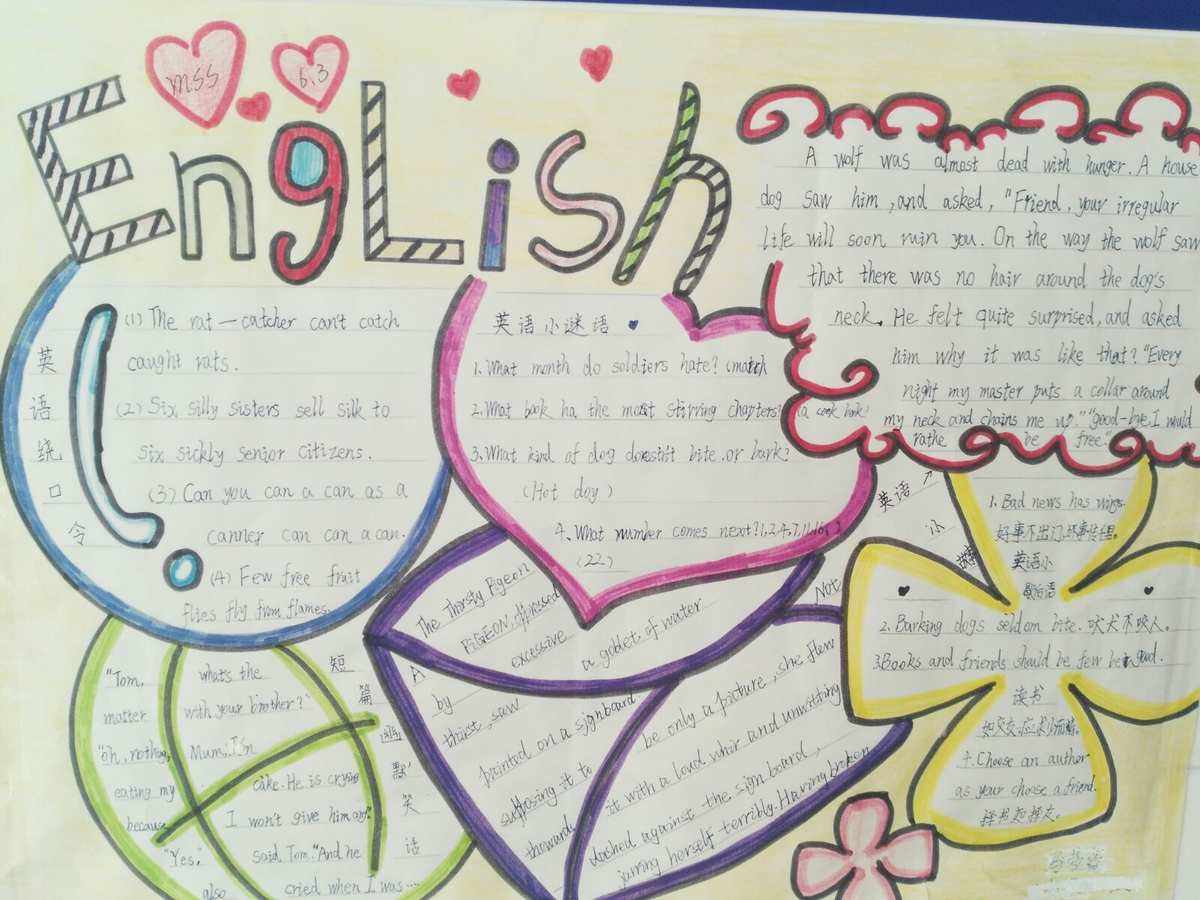 mss
6.3
English
英语绕口令
(1) The rat-catcher can't catch
caught rats.
(2) Six silly sisters sell silk to
six sickly senior citizens.
(3) Can you can a can as a
canner can can a can.
(4) Few free fruit
flies fly from flames.
英语小谜语
1. What month do soldiers hate? (match
2. What book ha the most stirring chapters? (a cook book)
3. What kind of dog doesn't bite or bark?
(Hot dog)
4. What number comes next? 1,2,4,7,11,16,( )
(22)
A wolf was almost dead with hunger. A house
dog saw him, and asked, "Friend, your irregular
life will soon ruin you. On the way the wolf saw
that there was no hair around the dog's
neck. He felt quite surprised, and asked
him why it was like that? "Every
night my master puts a collar around
my neck and chains me up." "good-bye. I would
rathe be free."
英语小
1. Bad news has wings.
好事不出门,坏事传
英语小
谚语
2. Barking dogs seldom bite. 吠犬不咬人。
3. Books and friends should be few but good.
读书
如交友,应求少而精。
4. Choose an author
as your choose a friend.
择书如择友。
短篇幽默笑话
"Tom, what's the
matter with your brother?"
"oh, nothing, Mum. I'm
eating my cake. He is crying
because I won't give him any."
"Yes," said Tom. "And he
also cried when I was....
The Thirsty Pigeon
A PIGEON, oppressed
by excessive
thirst, saw a goblet of water
painted on a signboard
Not
supposing it to be only a picture, she flew
towards it with a loud whir and unwitting
dashed against the sign board,
jarring herself terribly. Having broken